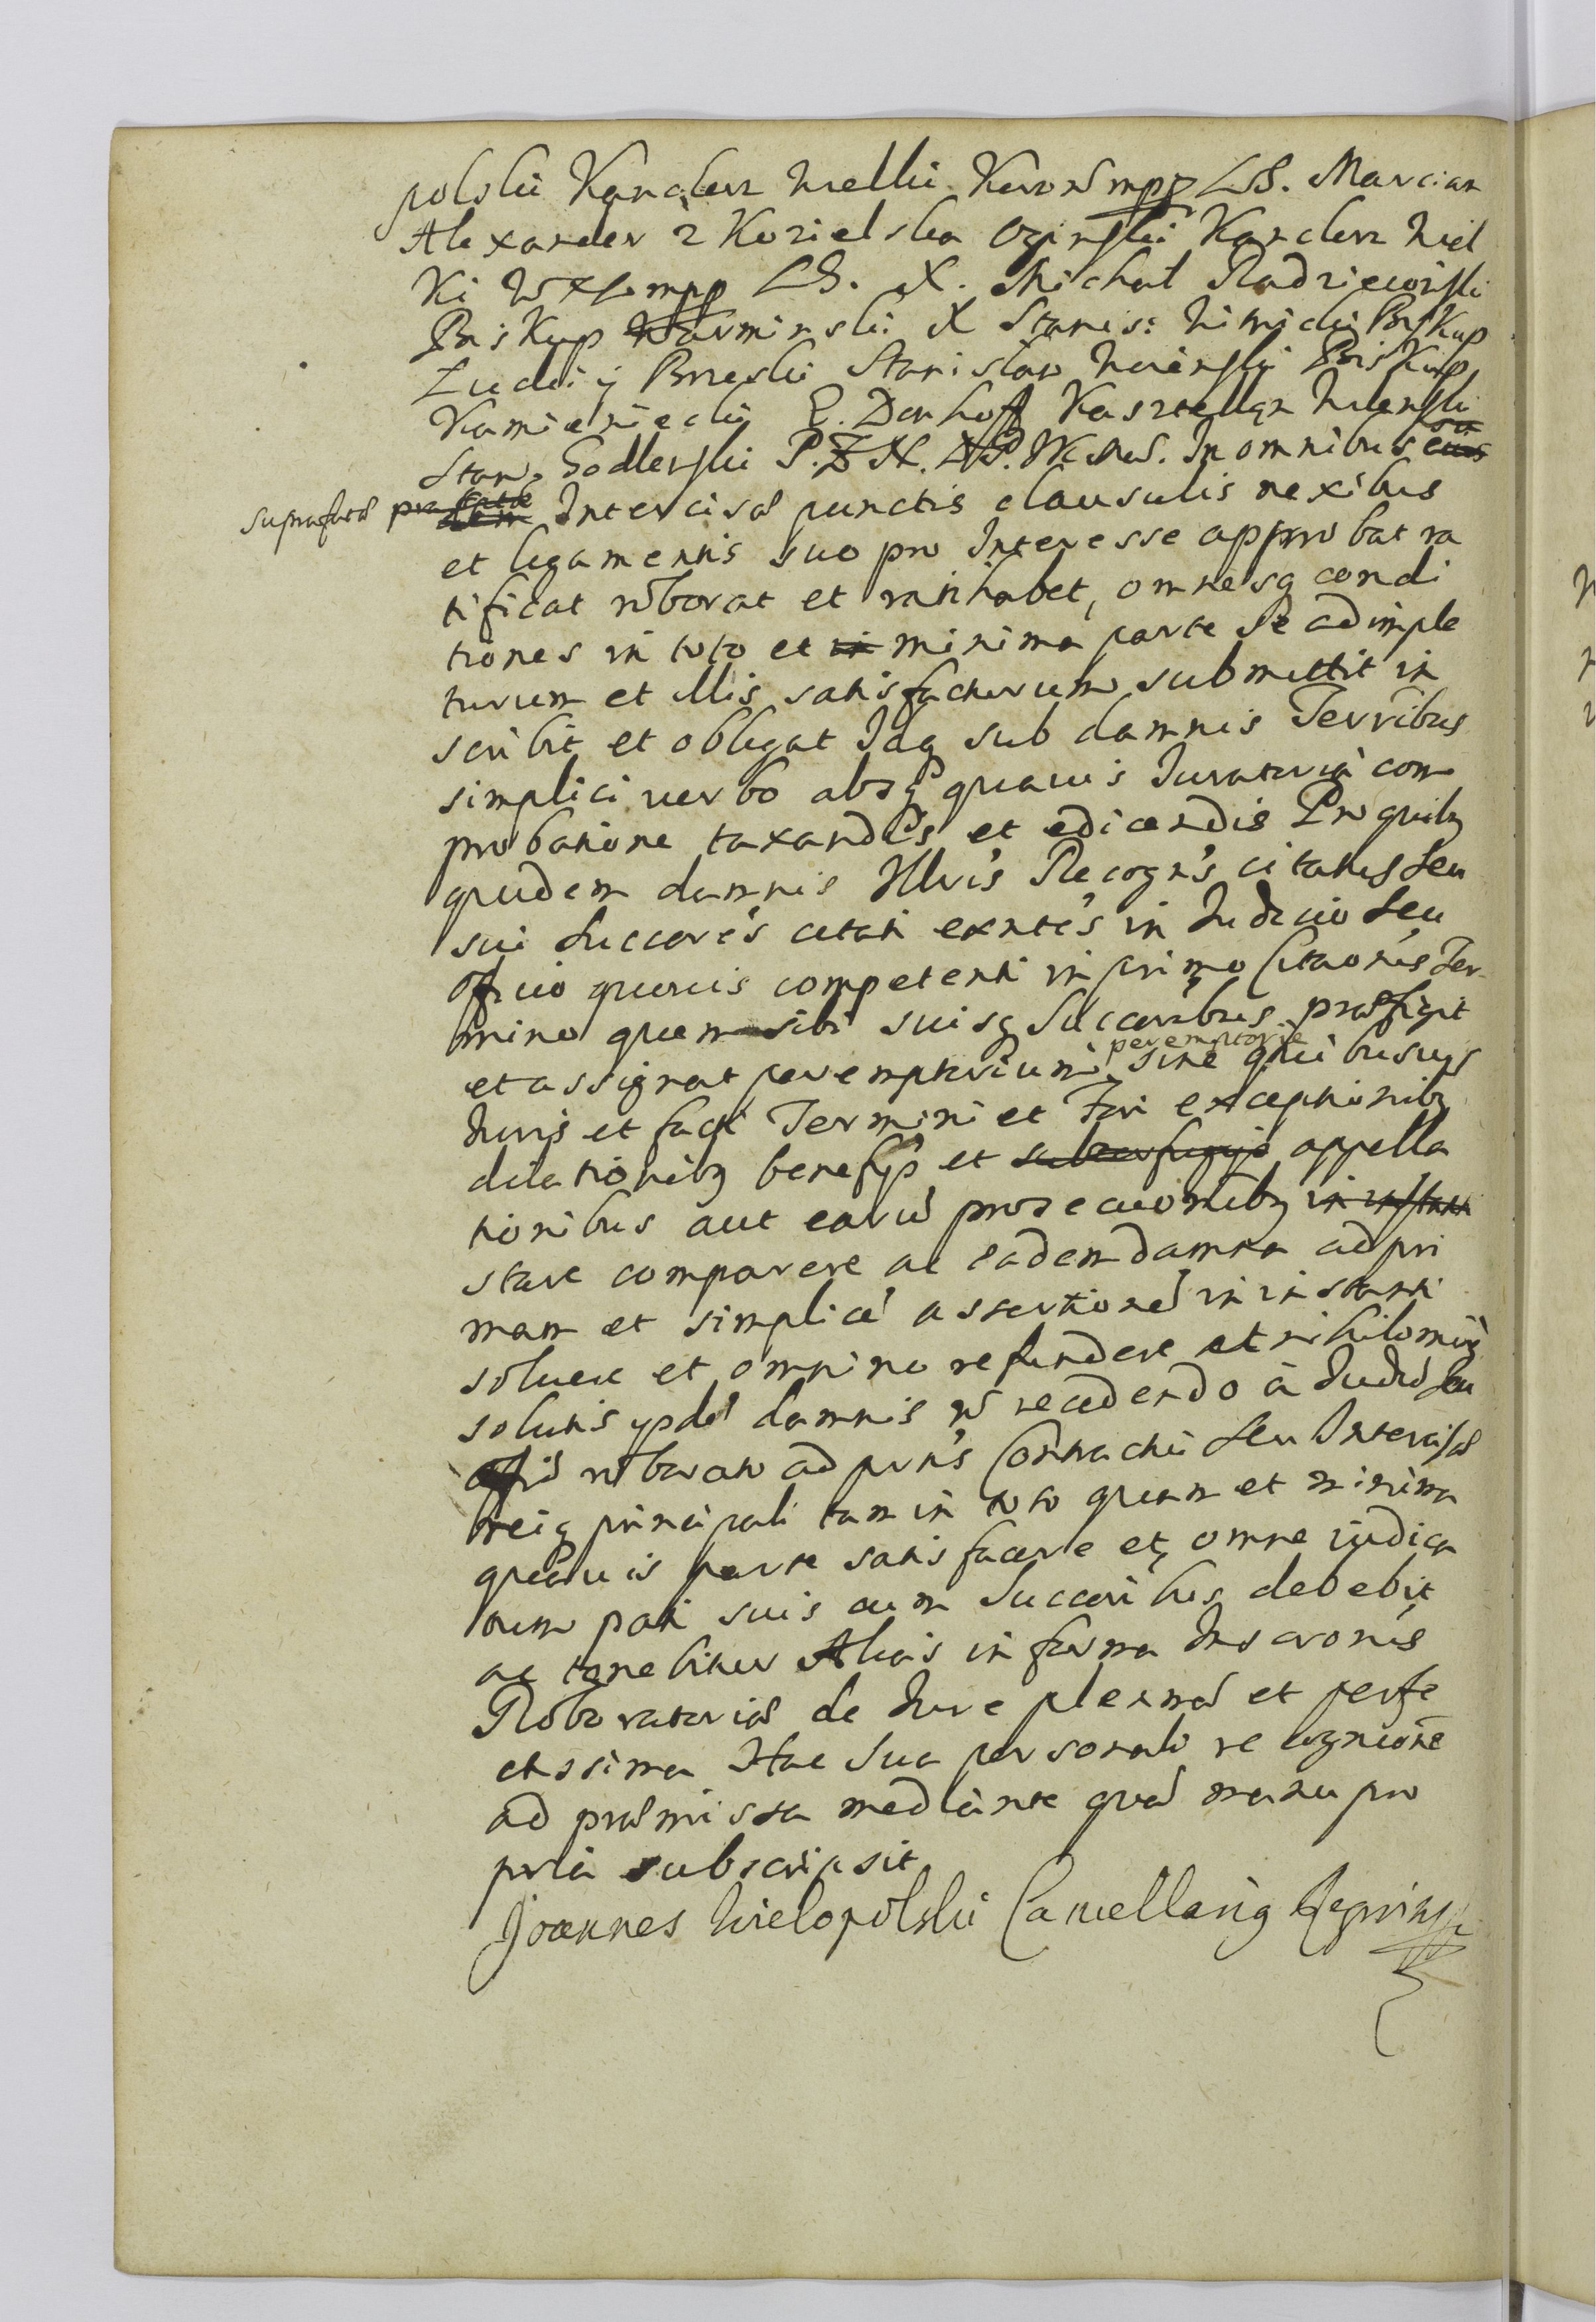 polski Kanclerz Wielki Koronʼ mpp LS. Marcian
Alexander z Kozielska Oginski Kanclerz Wiel
Ki WXL mpp LS. X. Michał Radzieiowski
Biskup Warminski X Stanis: Witwicki Biskup
Łucki ÿ Brzeski Stanisław Woienski Biskup
Kamieniecki E. Denhoff Kasztellan Wilenski
Stan. Godlewski P. Z N. In omnibus
suprascriptae Intercisae punctis clausulis nexibus
et ligamentis suo pro Interesse approbat ra
tificat roborat et ratihabet, omnesq condi
tiones in toto et in minima parte se adimple
turum et illis satisfacturum submittit in
scribit et obligat Idq sub damnis Terribus
simplici verbo absq quavis Iuratoria com
probatione taxandis et edicendis Pro quibq
quidem damnis Illris Recogns citatus seu
sui Succores citati exntes in Iudicio seu
Officio quovis competenti in primo Citaonis Ter-
mino quem sibi suisq Succoribus praefigit
peremptorie
et assignat peremptorium sine quibusvis
Iuris et facti Termini et Fori exceptionibq
dilationibq benefÿs et subterfugijs appella
tionibus aut earu prosecuonibq in instanti
stare comparere ac eadem damna ad pri
mam et simplice assertione in instanti
solvere et omnino refundere et nihilominq
solutis ypde damnis no recedendo à Iudio seu
Offio roborato ad pntis Contractu seu Intercisae
reiq principali tam in toto quam et minima
quavis parte satisfacere et omne iudica
tum pati suis cum Succoribus debebit
ac tenebitur Alias in forma Inscronis
Roboratoriae de Iure plenae et perfe
ctissima Hac Sua personali recognicione
ad praemissa mediante qua manu pro
pria subscripsit
Joannes Wielopolski Cancellariq Regni mpp